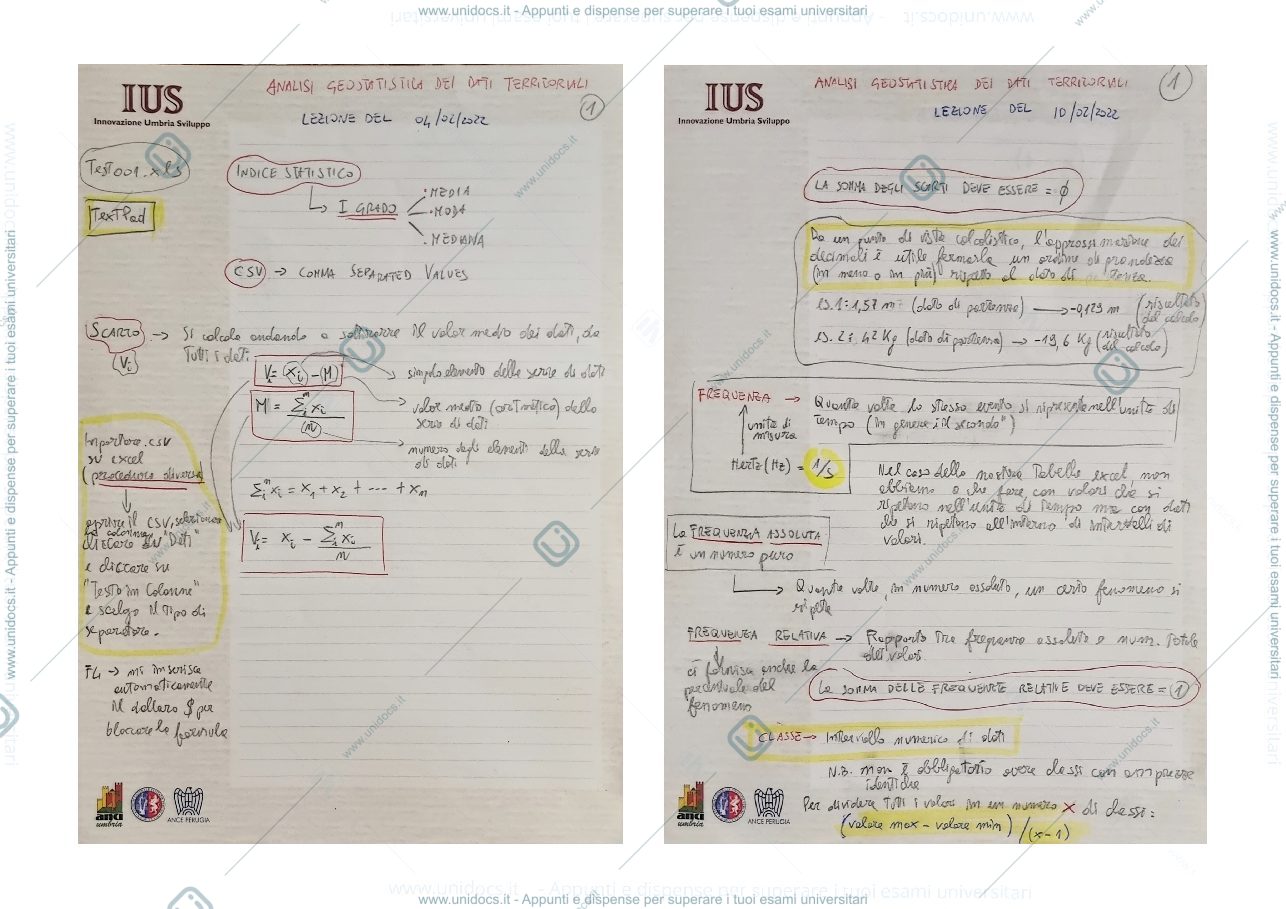 www.unidocs.it - Appunti e dispense per superare i tuoi esami universitari
IUS
Innovazione Umbria Sviluppo
ANALISI GEOSTATISTICA DEI DATI TERRITORIALI
1
LEZIONE DEL 04/02/2022
Test001.xls
TextPad
INDICE STATISTICO
I GRADO
MEDIA
MODA
MEDIANA
CSV → COMMA SEPARATED VALUES
SCARTO → Si calcola andando a sottrarre il valor medio dei dati, da
(Vi)
Tutti i dati
Vi = (xi) - (M)
singolo elemento della serie di dati
M = Σxi / N
valor medio (aritmetico) della
serie di dati
numero degli elementi della serie
di dati
Σxi = x1 + x2 + --- + xn
Vi = xi - Σxi / N
Importare .csv
su excel
(procedura diversa)
aprire il CSV, selezionare
la colonna
cliccare su "Dati"
e cliccare su
"Testo in colonne"
e scelgo il tipo di
separatore.
F4 → mi inserisce
automaticamente
il dollaro $ per
bloccare la formula
anci
umbria
ANCE PERUGIA
IUS
Innovazione Umbria Sviluppo
ANALISI GEOSTATISTICA DEI DATI TERRITORIALI
1
LEZIONE DEL 10/02/2022
LA SOMMA DEGLI SCARTI DEVE ESSERE = ϕ
Da un punto di vista calcolistico, l'approssimazione dei
decimali è utile fermarla un ordine di grandezza
(in meno o in più) rispetto al dato di partenza.
ES. 1: 1,57 m (dato di partenza) → -0,129 m (risultato
del calcolo)
ES. 2: 42 Kg (dato di partenza) → -19,6 Kg (risultato
del calcolo)
FREQUENZA → Quante volte lo stesso evento si ripresenta nell'unità di
tempo (in genere è il secondo")
unità di
misura
Hertz (Hz) = 1/s
Nel caso della nostra Tabella excel, non
abbiamo a che fare con valori che si
ripetono nell'unità di tempo ma con dati
che si ripetono all'interno di intervalli di
valori.
La FREQUENZA ASSOLUTA
è un numero puro
Quante volte, in numero assoluto, un certo fenomeno si
ripete
FREQUENZA RELATIVA → Rapporto tra frequenza assoluta e num. totale
dei valori.
ci fornisce anche la
percentuale del
fenomeno
LA SOMMA DELLE FREQUENZE RELATIVE DEVE ESSERE = 1
CLASSE → Intervallo numerico di dati
N.B. non è obbligatorio avere classi con ampiezze
identiche
Per dividere tutti i valori in un numero X di classi:
(valore max - valore min) / (x-1)
anci
umbria
ANCE PERUGIA
www.unidocs.it - Appunti e dispense per superare i tuoi esami universitari